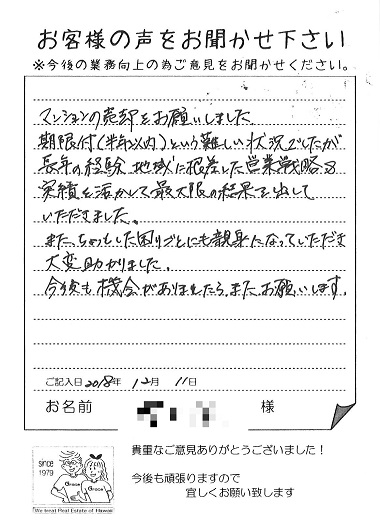 お客様の声をお聞かせ下さい
※今後の業務向上の為ご意見をお聞かせください。
マンションの売却をお願いしました
期限付(半年以内)という難しい状況でしたが
長年の経験、地域に根差した営業戦略
実績を活かして最大限の結果を出して
いただきました。
また、ちょっとした困りごとにも親身になっていただき
大変助かりました。
今後も機会がありましたら、また、お願いします。
ご記入日 2018年 12月 11日
お名前 様
since
1979
Grace
Grace
We treat Real Estate of Hawaii
貴重なご意見ありがとうございました！
今後も頑張りますので
宜しくお願い致します